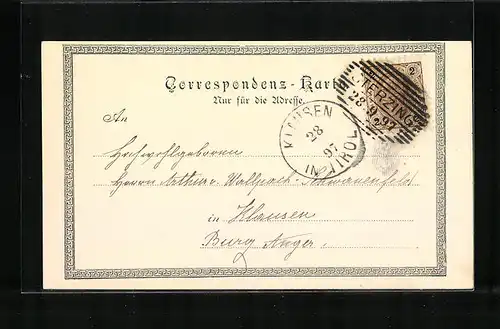 Correspondenz-Karte
Nur für die Adresse.
2
STERZING
28.9.97
KLAUSEN
28
97
IN TIROL
An
Hochwohlgeboren
Herrn Arthur v. Wallpach-Schwanenfeld
in Klausen
Burg Anger.